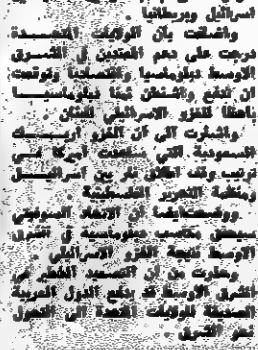 اسرائيل وبريطانيا .
واضافت بأن الولايات المتحـــدة
درجت على دعم المعتدين في الشــرق
الاوسط دبلوماسيا واقتصاديا وتوقعت
ان تدفع واشنطن ثمنا دبلوماسيـــا
باهظا للغزو الاسرائيلي للبنان .
واشارت الى ان الغزو اربــــك
السعودية التي ضغطت اميركا فـــي
ترتيب وقف اطلاق نار بين اسرائيـــل
ومنظمة التحرير الفلسطينية .
ووضعت ايضا ان الاتحاد السوفيتي
سيحقق مكاسب دبلوماسية في الشرق
الاوسط نتيجة الغزو الاسرائيلي .
وحذرت من ان التصعيد الخطير في
الشرق الاوسط قد يدفع الدول العربية
الصديقة للولايات المتحدة الى التحول
نحو الشرق .